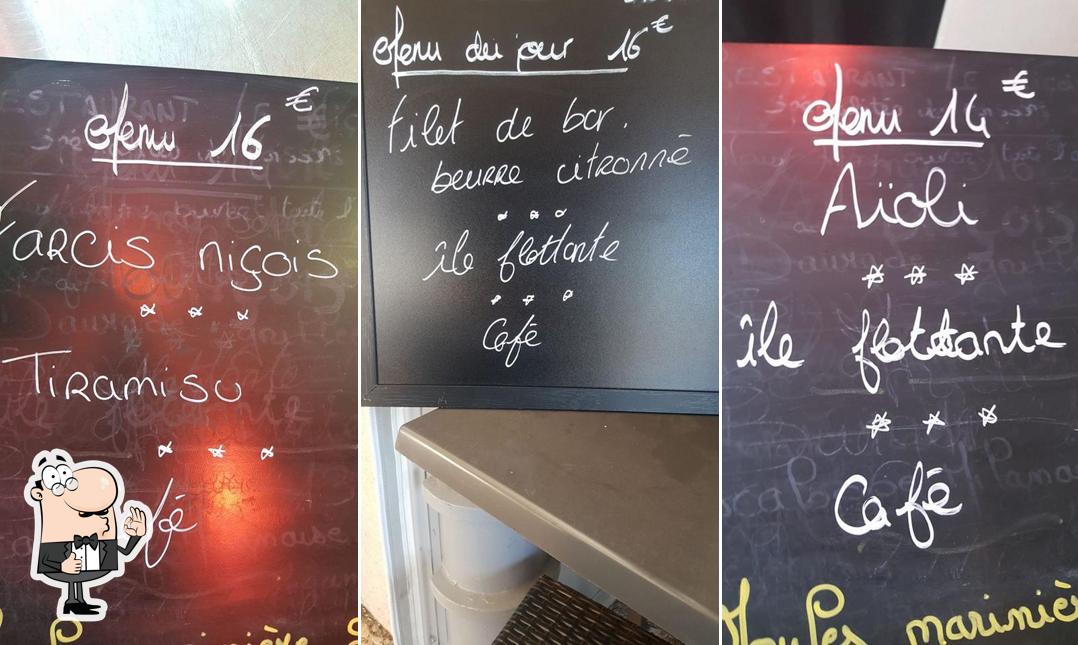 Menu 16 €
Farcis niçois
Tiramisu
Menu du jour 16 €
filet de bar.
beurre citronné
île flottante
Café
Menu 14 €
Aïoli
île flottante
Café
Moules marinières